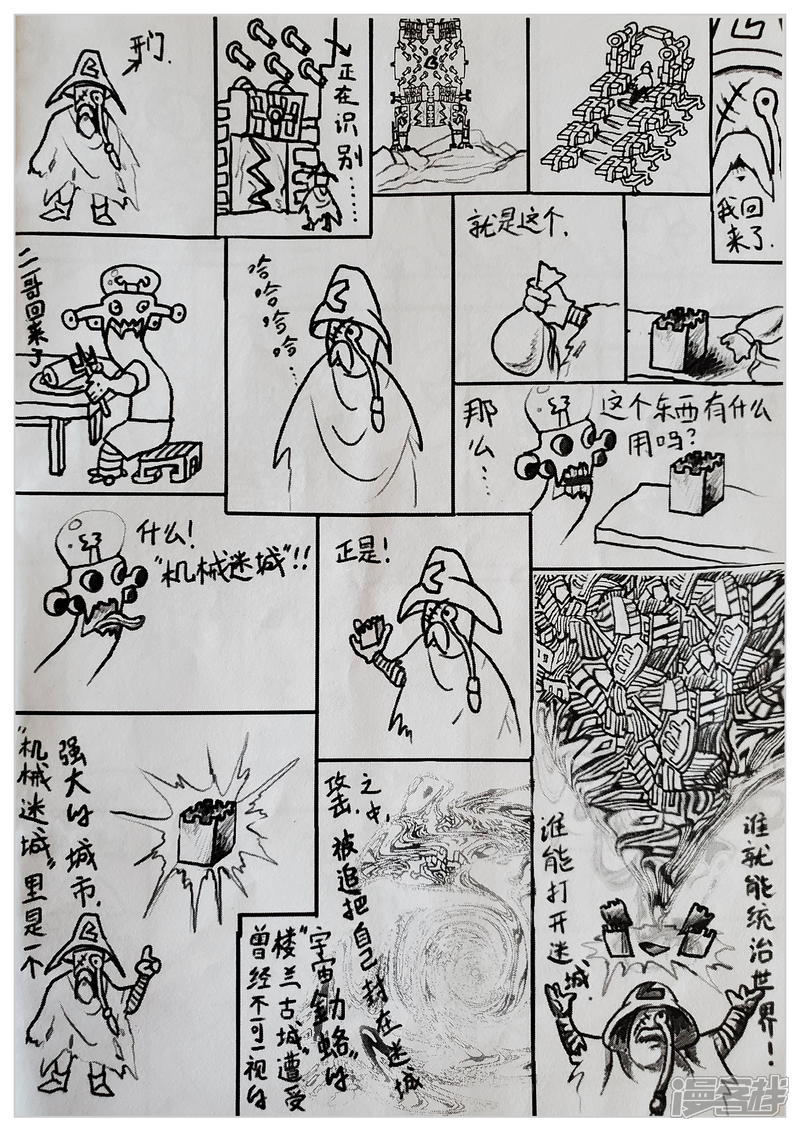 开门.
正在识别……
我回
来了.
二哥回来了
哈哈哈哈…
就是这个.
那么…
这个东西有什么
用吗?
什么!
"机械迷城"!!
正是!
"机械迷城"里是一个
强大的城市.
曾经不可一视的
"楼兰古城"遭受
"宇宙
的
攻击.
被追把自己封在迷城
之中.
谁能打开迷城.
谁就能统治世界!
漫客栈